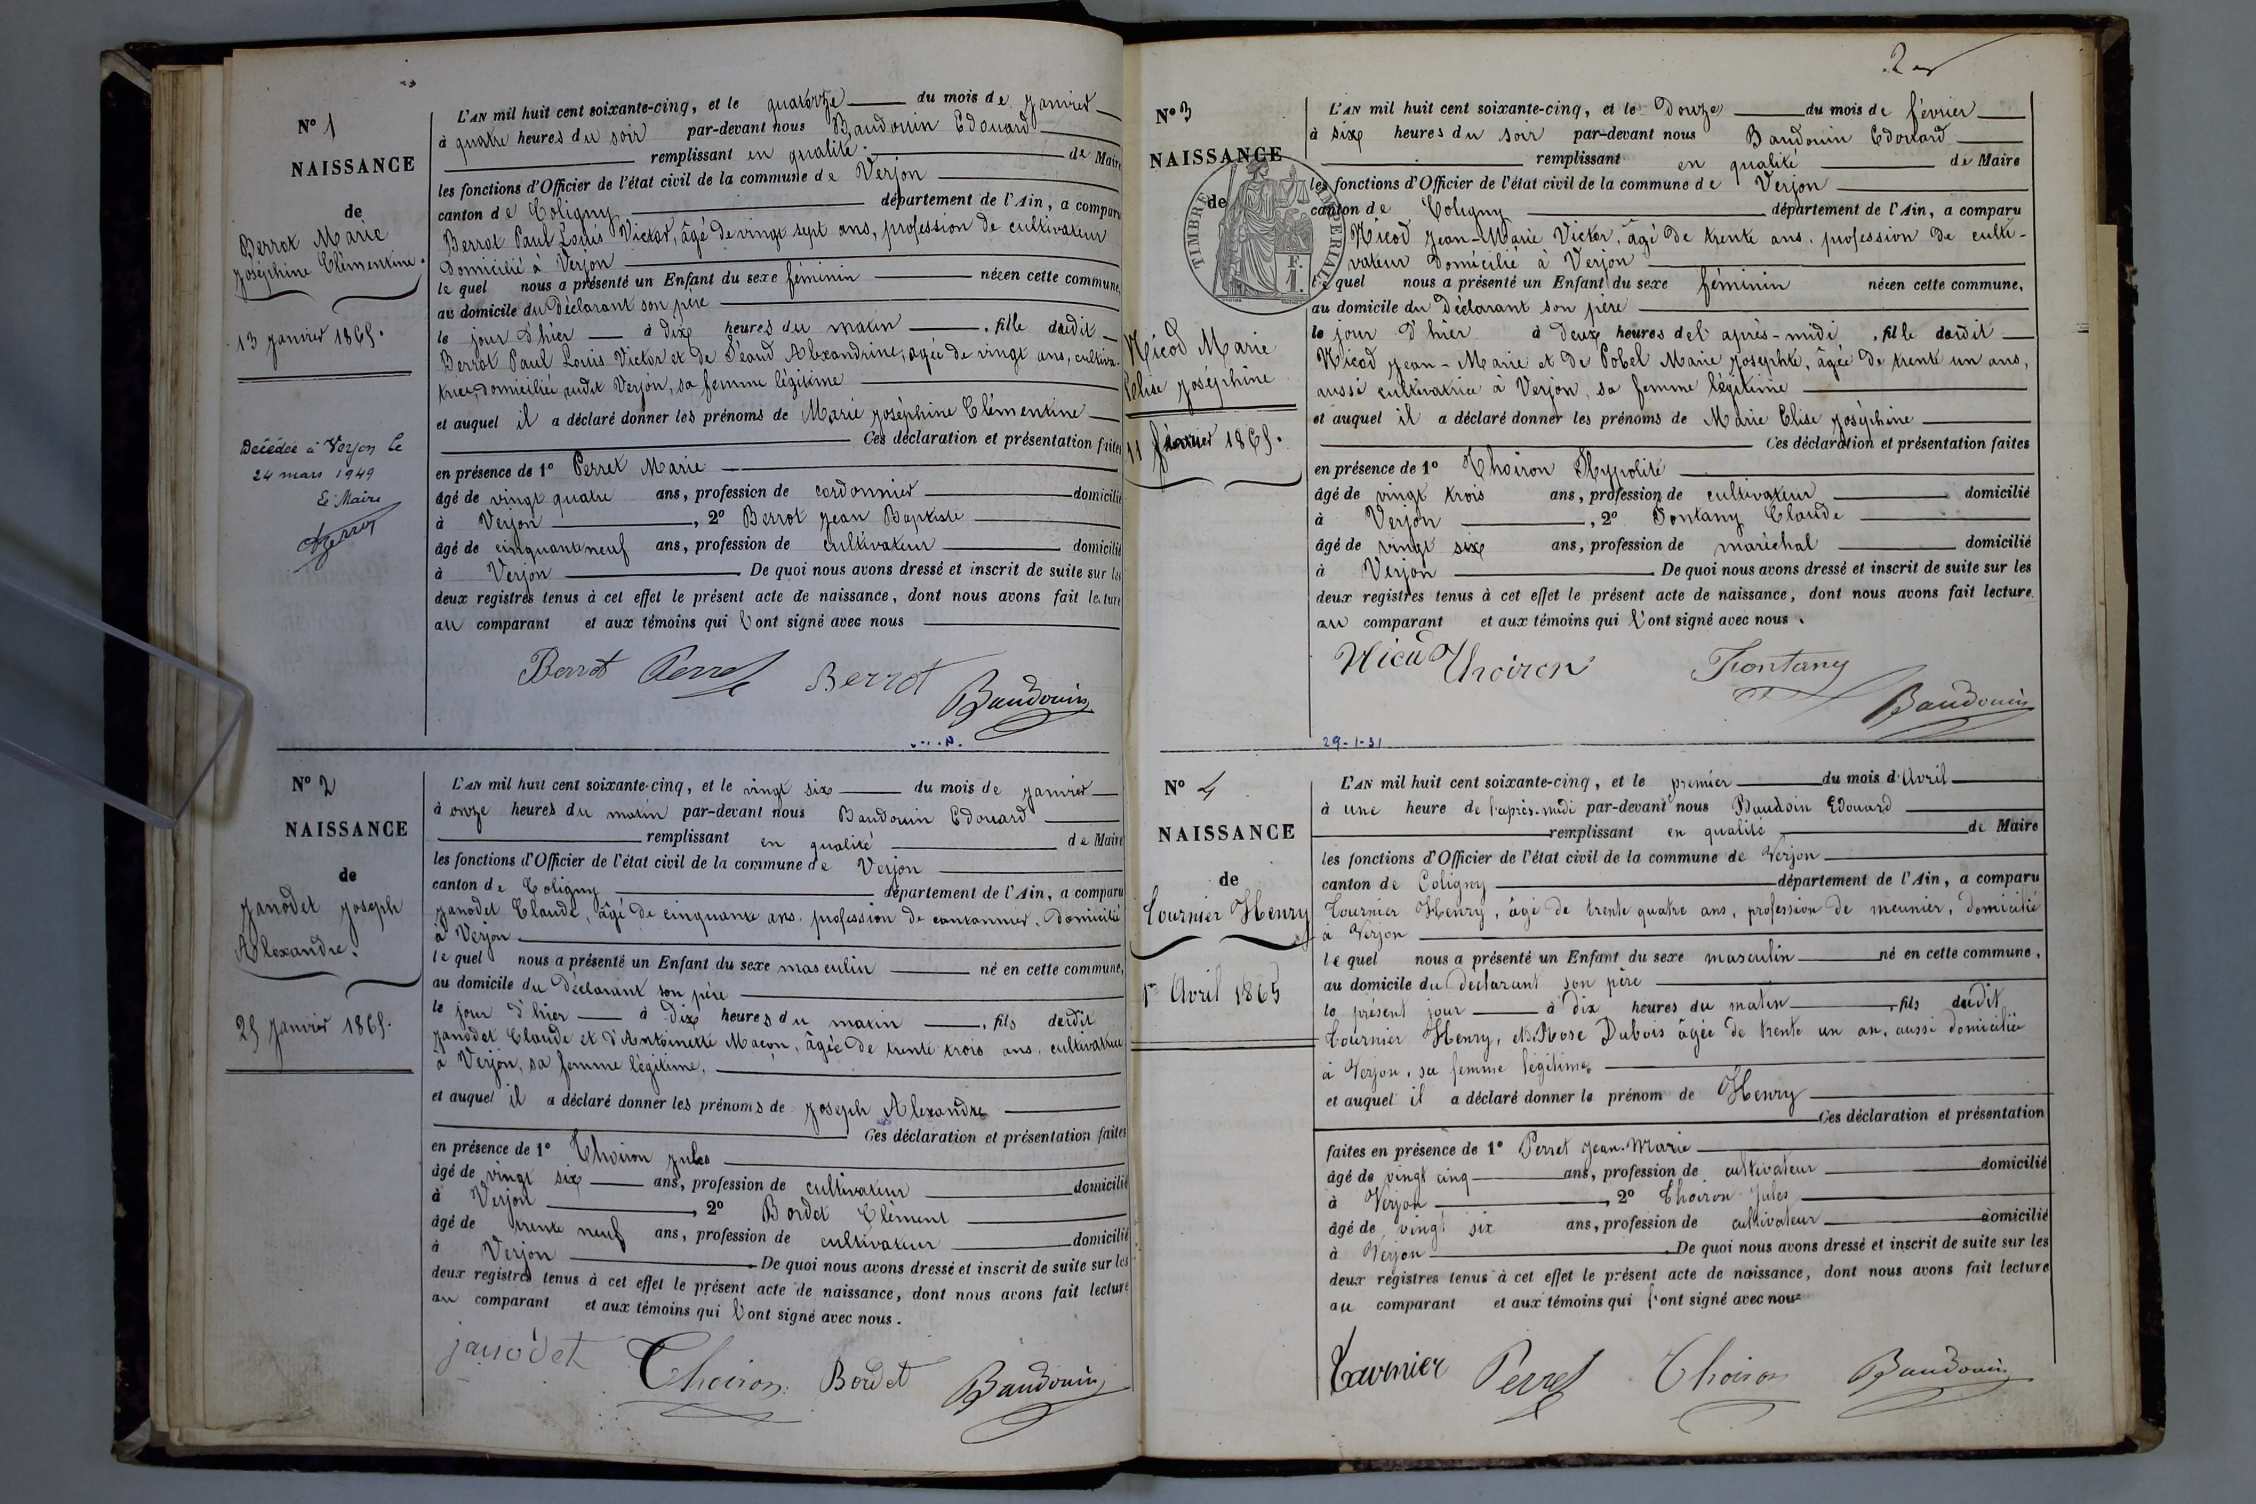 Nº 1
NAISSANCE
de
Berrot Marie
Joséphine Clémentine.
13 janvier 1865.
Décédée à Verjon le
24 mars 1949
Le Maire
L'AN mil huit cent soixante-cinq, et le quatorze du mois de janvier
à quatre heures du soir par-devant nous Baudouin Edouard
remplissant en qualité. de Maire
les fonctions d'Officier de l'état civil de la commune de Verjon
canton de Coligny département de l'Ain, a comparu
Berrot Paul Louis Victor, âgé de vingt sept ans, profession de cultivateur
domicilié à Verjon
lequel nous a présenté un Enfant du sexe féminin née en cette commune,
au domicile du Déclarant son père
le jour d'hier à dix heures du matin, fille dudit
Berrot Paul Louis Victor et de Alexandrine, agée de vingt ans, cultiva-
trice, domiciliée audit Verjon, sa femme légitime
et auquel il a déclaré donner les prénoms de Marie Joséphine Clémentine
Ces déclaration et présentation faites
en présence de 1º Perret Marie
âgé de vingt quatre ans, profession de cordonnier domicilié
à Verjon, 2º Berrot Jean Baptiste
âgé de cinquante neuf ans, profession de cultivateur domicilié
à Verjon De quoi nous avons dressé et inscrit de suite sur les
deux registres tenus à cet effet le présent acte de naissance, dont nous avons fait lecture
au comparant et aux témoins qui l'ont signé avec nous
Berrot Perret Berrot Baudouin
Nº 2
NAISSANCE
de
Janodet Joseph
Alexandre.
25 janvier 1865.
L'AN mil huit cent soixante-cinq, et le vingt six du mois de janvier
à onze heures du matin par-devant nous Baudouin Edouard
remplissant en qualité de Maire
les fonctions d'Officier de l'état civil de la commune de Verjon
canton de Coligny département de l'Ain, a comparu
Janodet Claude, âgé de cinquante ans, profession de cantonnier, domicilié
à Verjon
lequel nous a présenté un Enfant du sexe masculin né en cette commune,
au domicile du Déclarant son père
le jour d'hier à dix heures du matin, fils dudit
Janodet Claude et d'Antoinette Macon, âgée de trente trois ans, cultivatrice
à Verjon, sa femme légitime,
et auquel il a déclaré donner les prénoms de Joseph Alexandre
Ces déclaration et présentation faites
en présence de 1º Thoiron Jules
âgé de vingt six ans, profession de cultivateur domicilié
à Verjon, 2º Bordet Clément
âgé de trente neuf ans, profession de cultivateur domicilié
à Verjon De quoi nous avons dressé et inscrit de suite sur les
deux registres tenus à cet effet le présent acte de naissance, dont nous avons fait lecture
au comparant et aux témoins qui l'ont signé avec nous.
janodet Thoiron Bordet Baudouin
2
Nº 3
NAISSANCE
de
TIMBRE IMPÉRIAL
F.
1.
Nicod Marie
Elise Joséphine
11 février 1865.
L'AN mil huit cent soixante-cinq, et le Douze du mois de février
à six heures du soir par-devant nous Baudouin Edouard
remplissant en qualité de Maire
les fonctions d'Officier de l'état civil de la commune de Verjon
canton de Coligny département de l'Ain, a comparu
Nicod Jean-Marie Victor, âgé de trente ans, profession de culti-
vateur domicilié à Verjon
lequel nous a présenté un Enfant du sexe féminin née en cette commune,
au domicile du Déclarant son père
le jour d'hier à deux heures del après-midi, fille dudit
Nicod Jean-Marie et de Pobel Marie Josephte, âgée de trente un ans,
aussi cultivatrice à Verjon, sa femme légitime
et auquel il a déclaré donner les prénoms de Marie Elise Joséphine
Ces déclaration et présentation faites
en présence de 1º Thoiron Hypolite
âgé de vingt trois ans, profession de cultivateur domicilié
à Verjon, 2º Fontany Claude
âgé de vingt six ans, profession de maréchal domicilié
à Verjon De quoi nous avons dressé et inscrit de suite sur les
deux registres tenus à cet effet le présent acte de naissance, dont nous avons fait lecture
au comparant et aux témoins qui l'ont signé avec nous.
Nicod Thoiron Fontany Baudouin
29-1-31
Nº 4
NAISSANCE
de
Tournier Henry
1er Avril 1865
L'AN mil huit cent soixante-cinq, et le premier du mois d'Avril
à une heure de l'après-midi par-devant nous Baudoin Edouard
remplissant en qualité de Maire
les fonctions d'Officier de l'état civil de la commune de Verjon
canton de Coligny département de l'Ain, a comparu
Tournier Henry, âgé de trente quatre ans, profession de meunier, domicilié
à Verjon
lequel nous a présenté un Enfant du sexe masculin né en cette commune,
au domicile du déclarant son père
le présent jour à dix heures du matin, fils dudit
Tournier Henry, et de Rose Dubois âgée de trente un an, aussi domiciliée
à Verjon, sa femme légitime
et auquel il a déclaré donner le prénom de Henry
Ces déclaration et présentation
faites en présence de 1º Perret Jean-Marie
âgé de vingt cinq ans, profession de cultivateur domicilié
à Verjon, 2º Thoiron Jules
âgé de vingt six ans, profession de cultivateur domicilié
à Verjon De quoi nous avons dressé et inscrit de suite sur les
deux registres tenus à cet effet le présent acte de naissance, dont nous avons fait lecture
au comparant et aux témoins qui l'ont signé avec nous
Tournier Perret Thoiron Baudouin